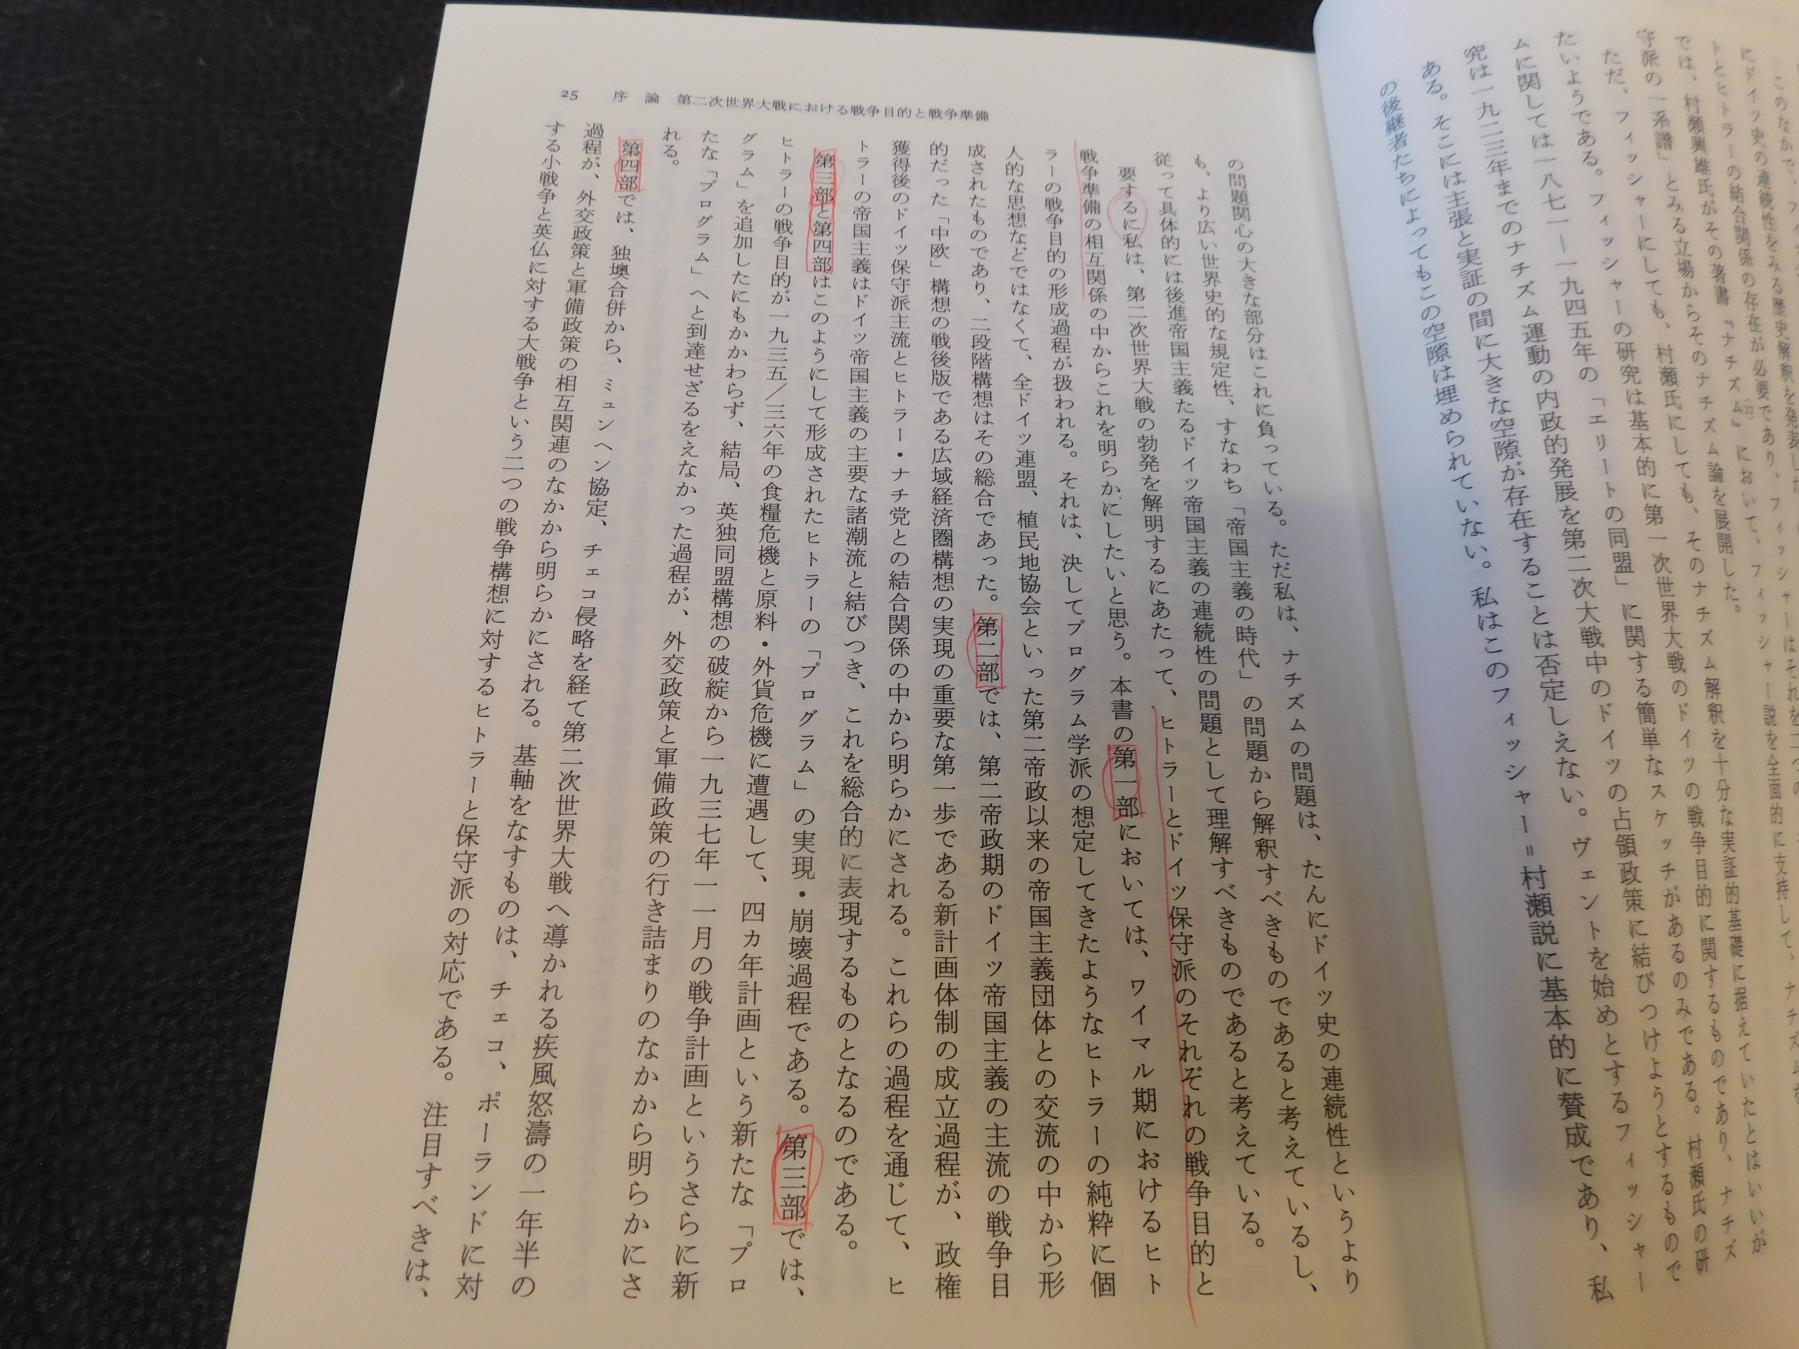 このなかで、フィッシャーはそれを二つの
にドイツ史の連続性をみる歴史解釈を発表した
トとヒトラーの結合関係の存在が必要であり、
では、村瀬興雄氏がその著書『ナチズム』において、フィッシャー説を全面的に支持して、ナチズムを
守派の「系譜」とみる立場からそのナチズム論を展開した。
ただ、フィッシャーにしても、村瀬氏にしても、そのナチズム解釈を十分な実証的基礎に据えていたとはいいが
たいようである。フィッシャーの研究は基本的に第一次世界大戦のドイツの戦争目的に関するものであり、ナチズ
ムに関しては一八七一―一九四五年の「エリートの同盟」に関する簡単なスケッチがあるのみである。村瀬氏の研
究は一九三三年までのナチズム運動の内政的発展を第二次大戦中のドイツの占領政策に結びつけようとするもので
ある。そこには主張と実証の間に大きな空隙が存在することは否定しえない。ヴェントを始めとするフィッシャー
の後継者たちによってもこの空隙は埋められていない。私はこのフィッシャー=村瀬説に基本的に賛成であり、私
25 序 論 第二次世界大戦における戦争目的と戦争準備
の問題関心の大きな部分はこれに負っている。ただ私は、ナチズムの問題は、たんにドイツ史の連続性というより
も、より広い世界史的な規定性、すなわち「帝国主義の時代」の問題から解釈すべきものであると考えているし、
従って具体的には後進帝国主義たるドイツ帝国主義の連続性の問題として理解すべきものであると考えている。
要するに私は、第二次世界大戦の勃発を解明するにあたって、ヒトラーとドイツ保守派のそれぞれの戦争目的と
戦争準備の相互関係の中からこれを明らかにしたいと思う。本書の第一部においては、ワイマル期におけるヒト
ラーの戦争目的の形成過程が扱われる。それは、決してプログラム学派の想定してきたようなヒトラーの純粋に個
人的な思想などではなくて、全ドイツ連盟、植民地協会といった第二帝政以来の帝国主義団体との交流の中から形
成されたものであり、二段階構想はその総合であった。第二部では、第二帝政期のドイツ帝国主義の主流の戦争目
的だった「中欧」構想の戦後版である広域経済圏構想の実現の重要な第一歩である新計画体制の成立過程が、政権
獲得後のドイツ保守派主流とヒトラー・ナチ党との結合関係の中から明らかにされる。これらの過程を通じて、ヒ
トラーの帝国主義はドイツ帝国主義の主要な諸潮流と結びつき、これを総合的に表現するものとなるのである。
第三部と第四部はこのようにして形成されたヒトラーの「プログラム」の実現・崩壊過程である。第三部では、
ヒトラーの戦争目的が一九三五/三六年の食糧危機と原料・外貨危機に遭遇して、四カ年計画という新たな「プロ
グラム」を追加したにもかかわらず、結局、英独同盟構想の破綻から一九三七年一一月の戦争計画というさらに新
たな「プログラム」へと到達せざるをえなかった過程が、外交政策と軍備政策の行き詰まりのなかから明らかにさ
れる。
第四部では、独墺合併から、ミュンヘン協定、チェコ侵略を経て第二次世界大戦へ導かれる疾風怒濤の一年半の
過程が、外交政策と軍備政策の相互関連のなかから明らかにされる。基軸をなすものは、チェコ、ポーランドに対
する小戦争と英仏に対する大戦争という二つの戦争構想に対するヒトラーと保守派の対応である。注目すべきは、